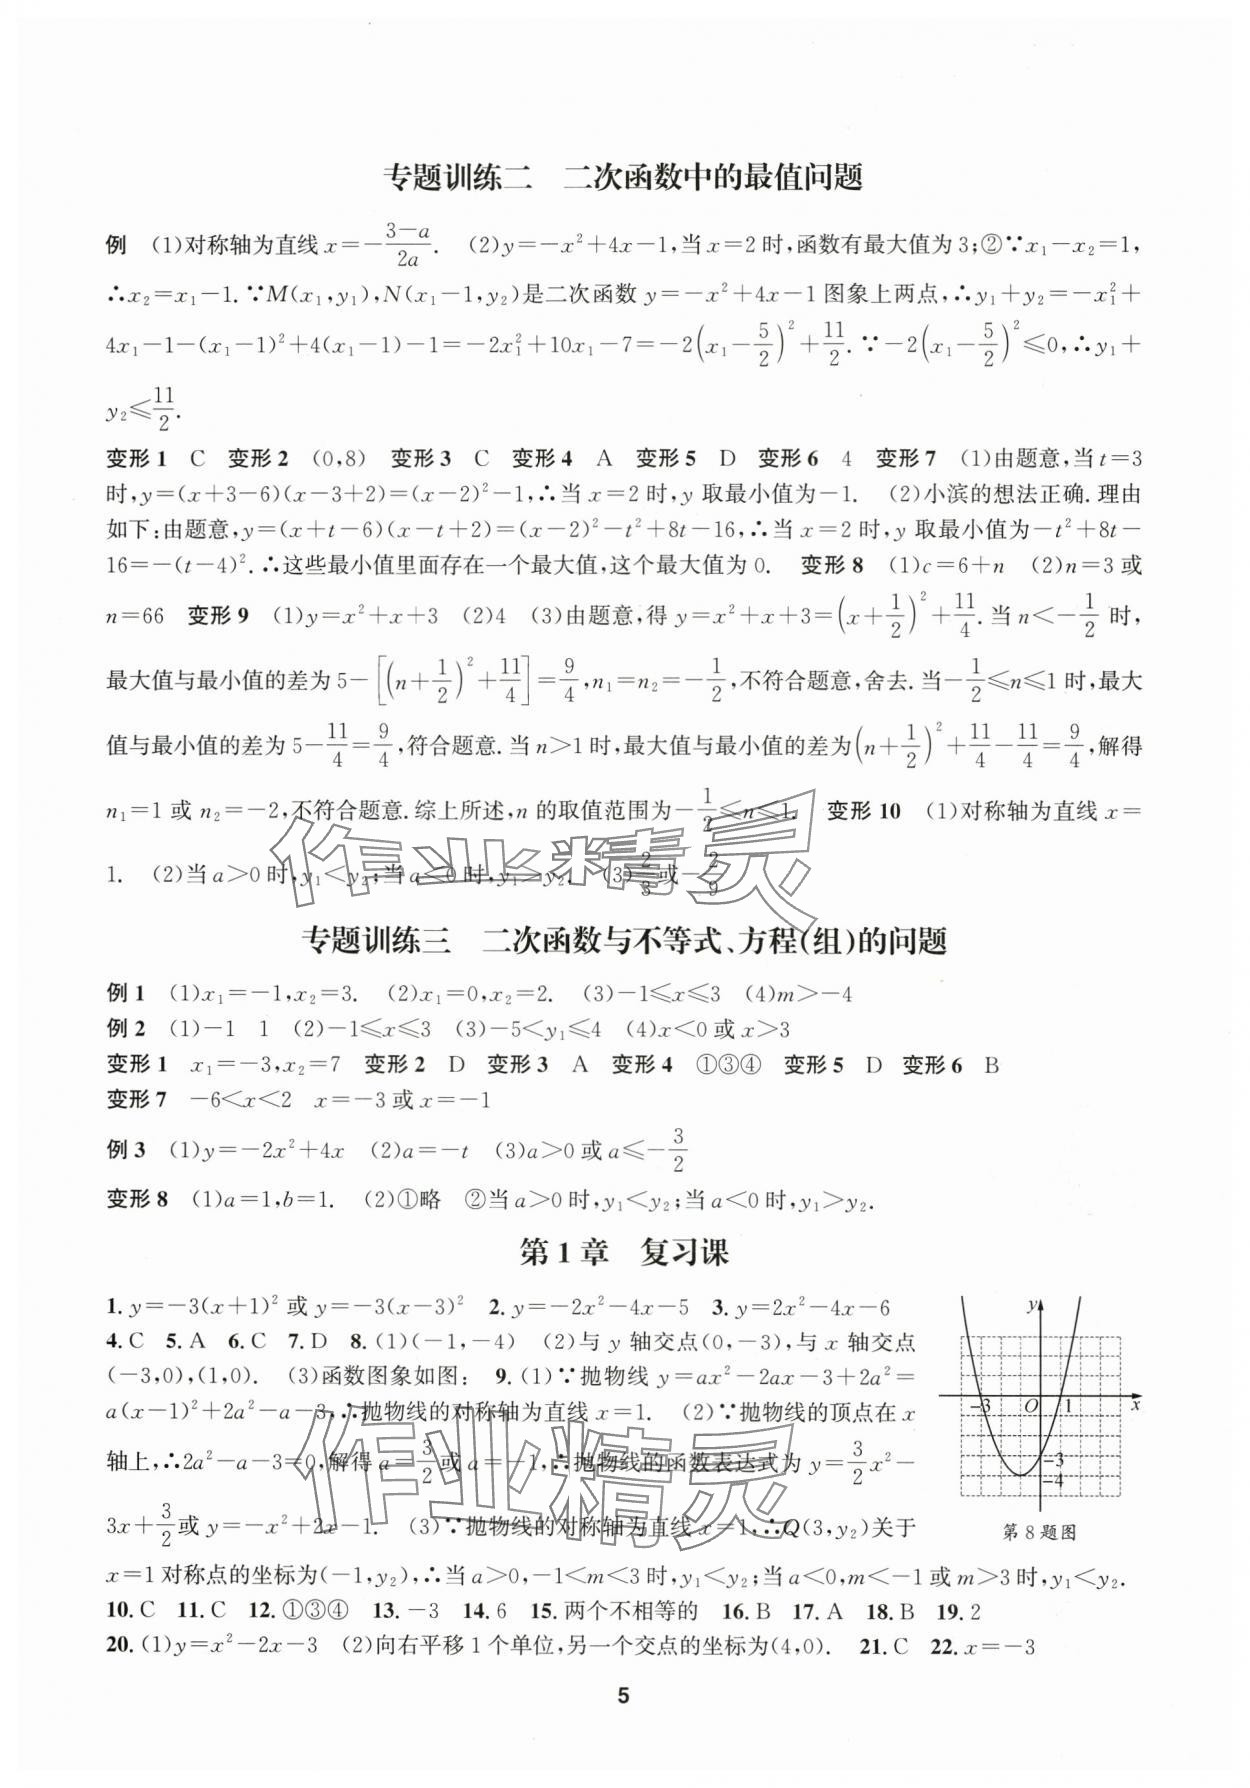 专题训练二　二次函数中的最值问题
例　(1)对称轴为直线 x=-\frac{3-a}{2a}.　(2)y=-x²+4x-1,当 x=2 时,函数有最大值为 3;②∵x₁-x₂=1,
∴x₂=x₁-1.∵M(x₁,y₁),N(x₁-1,y₂)是二次函数 y=-x²+4x-1 图象上两点,∴y₁+y₂=-x₁²+
4x₁-1-(x₁-1)²+4(x₁-1)-1=-2x₁²+10x₁-7=-2(x₁-\frac{5}{2})²+\frac{11}{2}.∵-2(x₁-\frac{5}{2})²≤0,∴y₁+
y₂≤\frac{11}{2}.
变形 1　C　变形 2　(0,8)　变形 3　C　变形 4　A　变形 5　D　变形 6　4　变形 7　(1)由题意,当 t=3
时,y=(x+3-6)(x-3+2)=(x-2)²-1,∴当 x=2 时,y 取最小值为-1.　(2)小滨的想法正确.理由
如下:由题意,y=(x+t-6)(x-t+2)=(x-2)²-t²+8t-16,∴当 x=2 时,y 取最小值为-t²+8t-
16=-(t-4)².∴这些最小值里面存在一个最大值,这个最大值为 0.　变形 8　(1)c=6+n　(2)n=3 或
n=66　变形 9　(1)y=x²+x+3　(2)4　(3)由题意,得 y=x²+x+3=(x+\frac{1}{2})²+\frac{11}{4}.当 n<-\frac{1}{2} 时,
最大值与最小值的差为 5-[(n+\frac{1}{2})²+\frac{11}{4}]=\frac{9}{4},n₁=n₂=-\frac{1}{2},不符合题意,舍去.当-\frac{1}{2}≤n≤1 时,最大
值与最小值的差为 5-\frac{11}{4}=\frac{9}{4},符合题意.当 n>1 时,最大值与最小值的差为(n+\frac{1}{2})²+\frac{11}{4}-\frac{11}{4}=\frac{9}{4},解得
n₁=1 或 n₂=-2,不符合题意.综上所述,n 的取值范围为-\frac{1}{2}≤n≤1.　变形 10　(1)对称轴为直线 x=
1.　(2)当 a>0 时,y₁<y₂;当 a<0 时,y₁>y₂.　(3)\frac{2}{3}或-\frac{2}{9}
作业精灵
专题训练三　二次函数与不等式、方程(组)的问题
例 1　(1)x₁=-1,x₂=3.　(2)x₁=0,x₂=2.　(3)-1≤x≤3　(4)m>-4
例 2　(1)-1　1　(2)-1≤x≤3　(3)-5<y₁≤4　(4)x<0 或 x>3
变形 1　x₁=-3,x₂=7　变形 2　D　变形 3　A　变形 4　①③④　变形 5　D　变形 6　B
变形 7　-6<x<2　x=-3 或 x=-1
例 3　(1)y=-2x²+4x　(2)a=-t　(3)a>0 或 a≤-\frac{3}{2}
变形 8　(1)a=1,b=1.　(2)①略　②当 a>0 时,y₁<y₂;当 a<0 时,y₁>y₂.
第 1 章　复习课
1.y=-3(x+1)² 或 y=-3(x-3)²　2.y=-2x²-4x-5　3.y=2x²-4x-6
4.C　5.A　6.C　7.D　8.(1)(-1,-4)　(2)与 y 轴交点(0,-3),与 x 轴交点
(-3,0),(1,0).　(3)函数图象如图:　9.(1)∵抛物线 y=ax²-2ax-3+2a²=
a(x-1)²+2a²-a-3,∴抛物线的对称轴为直线 x=1.　(2)∵抛物线的顶点在 x
轴上,∴2a²-a-3=0,解得 a=\frac{3}{2}或 a=-1,∴抛物线的函数表达式为 y=\frac{3}{2}x²-
3x+\frac{3}{2}或 y=-x²+2x-1.　(3)∵抛物线的对称轴为直线 x=1,∴Q(3,y₂)关于
x=1 对称点的坐标为(-1,y₂),∴当 a>0,-1<m<3 时,y₁<y₂;当 a<0,m<-1 或 m>3 时,y₁<y₂.
y
-3　O　1　x
-3
-4
第 8 题图
作业精灵
10.C　11.C　12.①③④　13.-3　14.6　15.两个不相等的　16.B　17.A　18.B　19.2
20.(1)y=x²-2x-3　(2)向右平移 1 个单位,另一个交点的坐标为(4,0).　21.C　22.x=-3
5